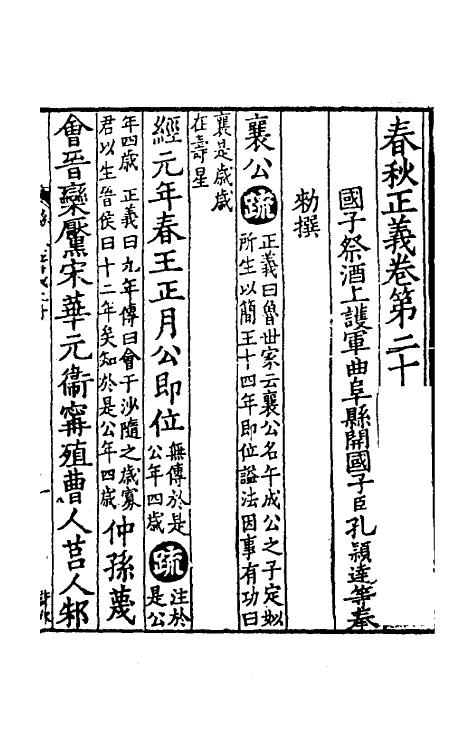 春秋正義卷第二十
國子祭酒上護軍曲阜縣開國子臣孔穎達等奉
勑撰
襄公 疏 正義曰魯世家云襄公名午成公之子定姒
所生以簡王十四年即位謚法因事有功曰
襄是歲歲
在壽星
經元年春王正月公即位 無傳於是
公年四歲 疏 注於
是公
年四歲 正義曰九年傳曰會于沙隨之歲寡
君以生晉侯曰十二年矣知於是公年四歲 仲孫蔑
會晉欒黡宋華元衞甯殖曹人莒人邾